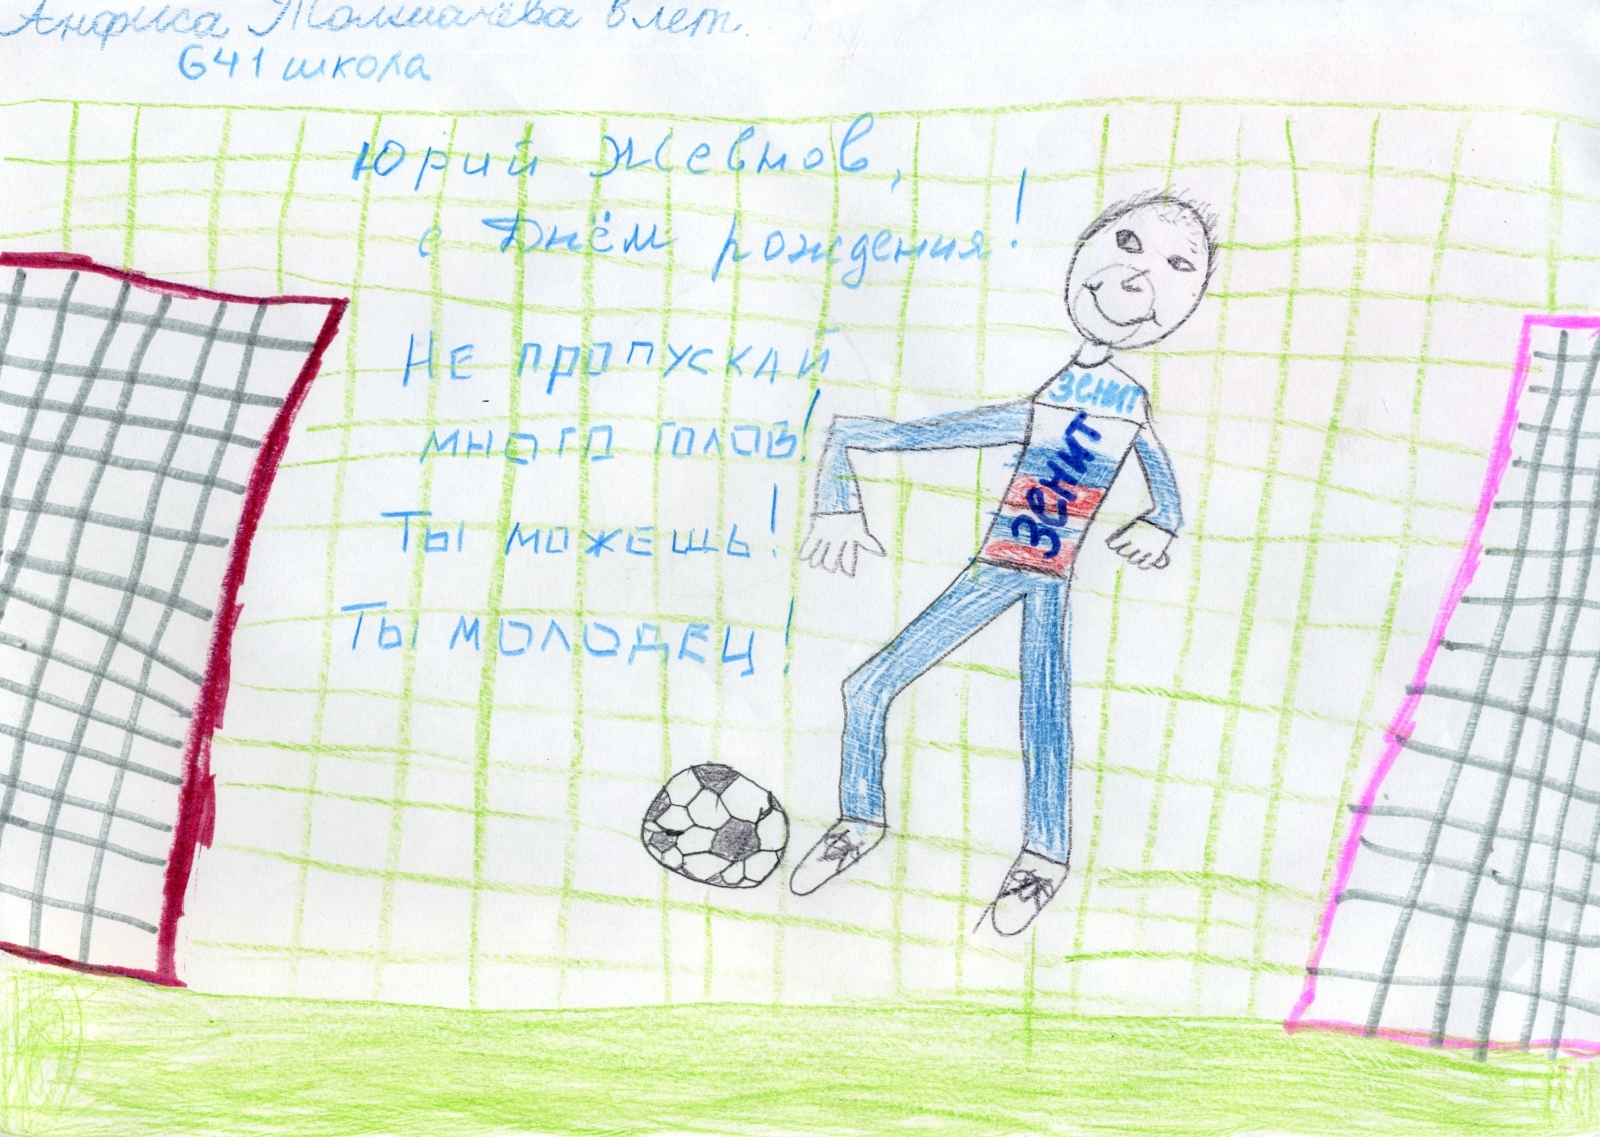 Анфиса Толмачёва 8 лет.
641 школа
Юрий Жевнов,
с Днём рождения!
Не пропускай
много голов!
Ты можешь!
Ты молодец!
зенит
Зенит